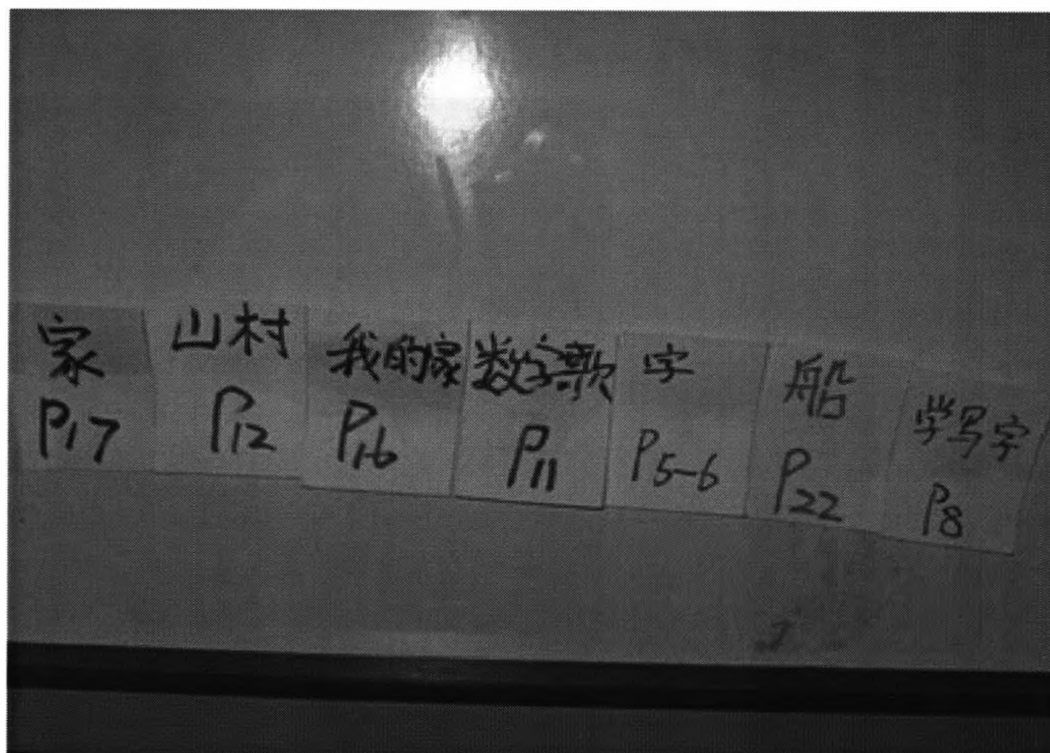 家
P17
山村
P12
我的家
P16
数字歌
P11
字
P5-6
船
P22
学写字
P8